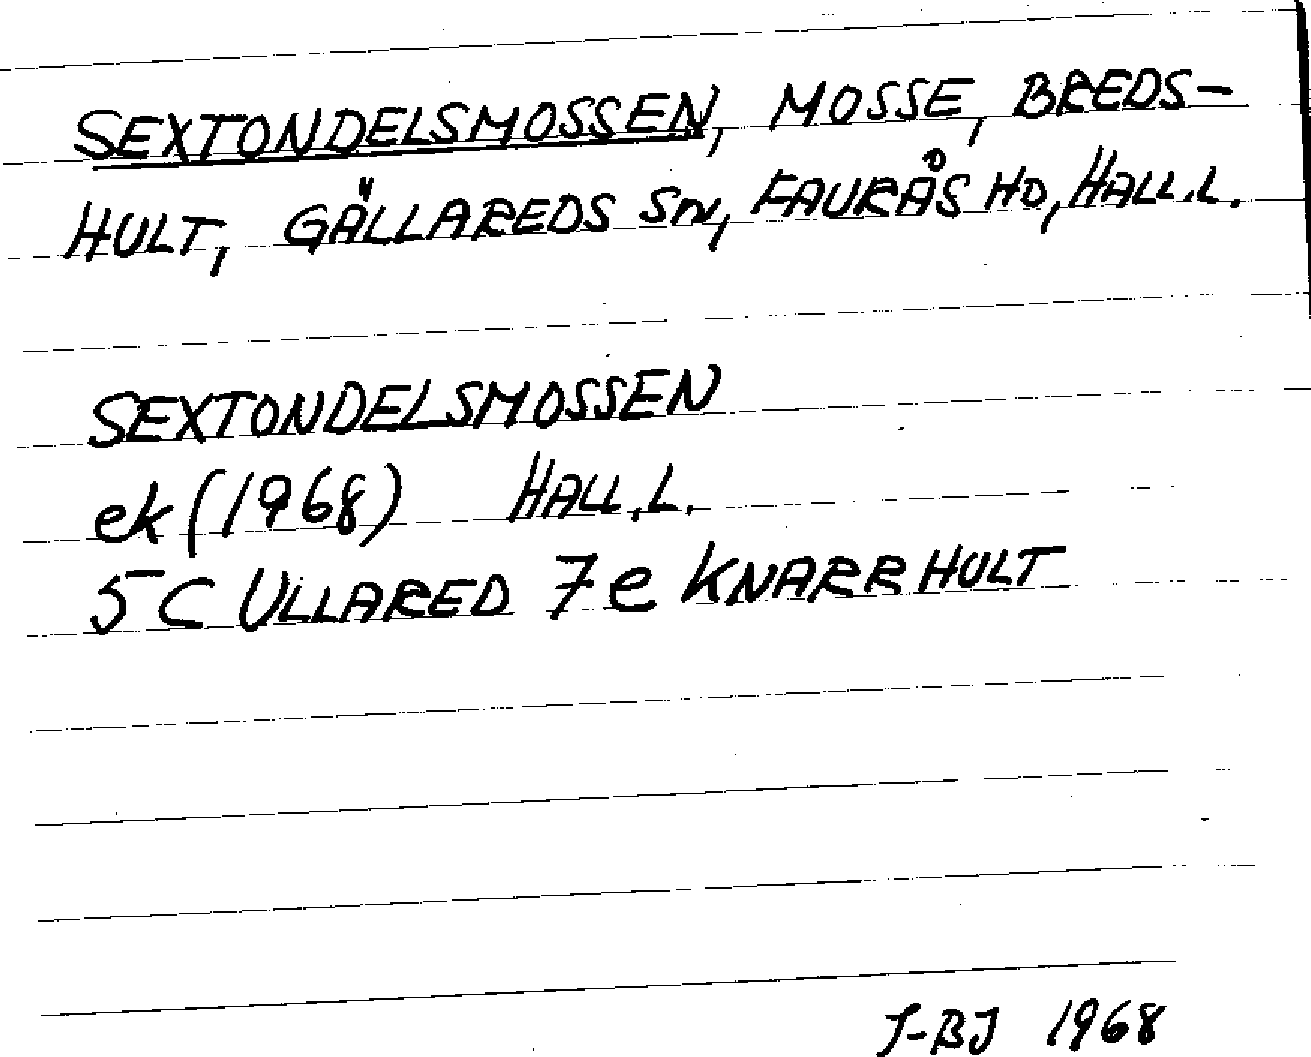 SEXTONDELSMOSSEN, MOSSE, BREDS-
HULT, GÄLLAREDS SN, FAURÅS HD, HALL.L.
SEXTONDELSMOSSEN
ek (1968) HALL.L.
5C ULLARED 7e KNARRHULT
J-BJ 1968